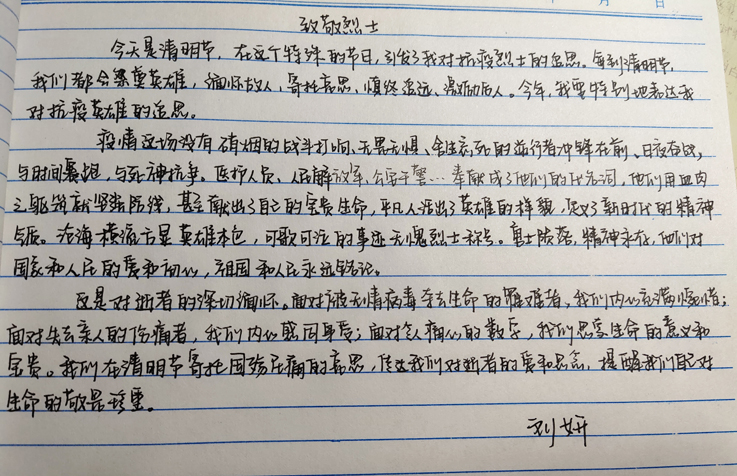 月 日
致敬烈士
今天是清明节，在这个特殊的节日，引发了我对抗疫烈士的追思。每到清明节，
我们都会祭奠英雄，缅怀故人，寄托哀思、慎终追远、激励后人。今年，我要特别地表达我
对抗疫英雄的追思。
疫情这场没有硝烟的战斗打响，无畏无惧、舍生忘死的逆行者冲锋在前、日夜奋战，
与时间赛跑，与死神抗争。医护人员、人民解放军、公安干警… 奉献成了他们的代名词，他们用血肉
之躯筑就坚强防线，甚至献出了自己的宝贵生命，平凡人活出了英雄的样貌，定义了新时代的精神
气质。沧海横流方显英雄本色，可歌可泣的事迹无愧烈士称号。勇士陨落，精神永存，他们对
国家和人民的爱和初心，祖国和人民永远铭记。
这是对逝者的深切缅怀。面对被无情病毒夺去生命的罹难者，我们内心充满惋惜；
面对失去亲人的伤痛者，我们内心感同身受；面对令人痛心的数字，我们思索生命的意义和
宝贵。我们在清明节寄托国殇巨痛的哀思，传达我们对逝者的爱和思念，提醒我们自己对
生命的敬畏珍重。
刘妍